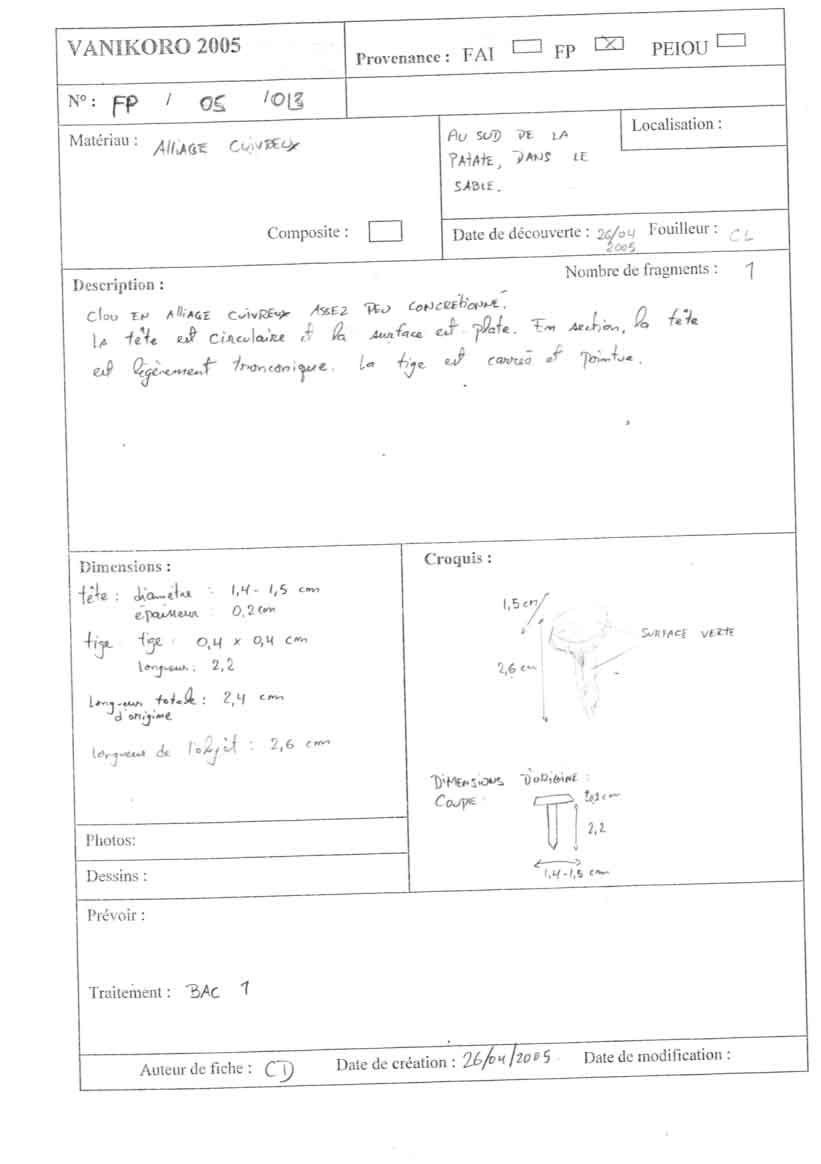 VANIKORO 2005
Provenance : FAI FP PEIOU
N° : FP / 05 / 013
Matériau : AlliAGE CUIVREUX
AU SUD DE LA
PATATE, DANS LE
SABLE.
Localisation :
Composite :
Date de découverte : 26/04
2005
Fouilleur : CL
Description :
Nombre de fragments : 1
Clou EN AlliAGE CUIVREUX ASSEZ PEU CONCRÉTIONNÉ.
La tête est circulaire et la surface est plate. Em section, la tête
est légèrement tronconique. La tige est carrée et pointue.
Dimensions :
tête : diamètre : 1,4 - 1,5 cm
épaisseur : 0,2 cm
tige tige : 0,4 x 0,4 cm
longueur : 2,2
Longueur totale : 2,4 cm
d'origine
longueur de l'objet : 2,6 cm
Croquis :
1,5 cm
2,6 cm
SURFACE VERTE
DIMENSIONS D'ORIGINE :
COUPE
0,2 cm
2,2
1,4-1,5 cm
Photos:
Dessins :
Prévoir :
Traitement : BAC 1
Auteur de fiche : CD Date de création : 26/04/2005 Date de modification :